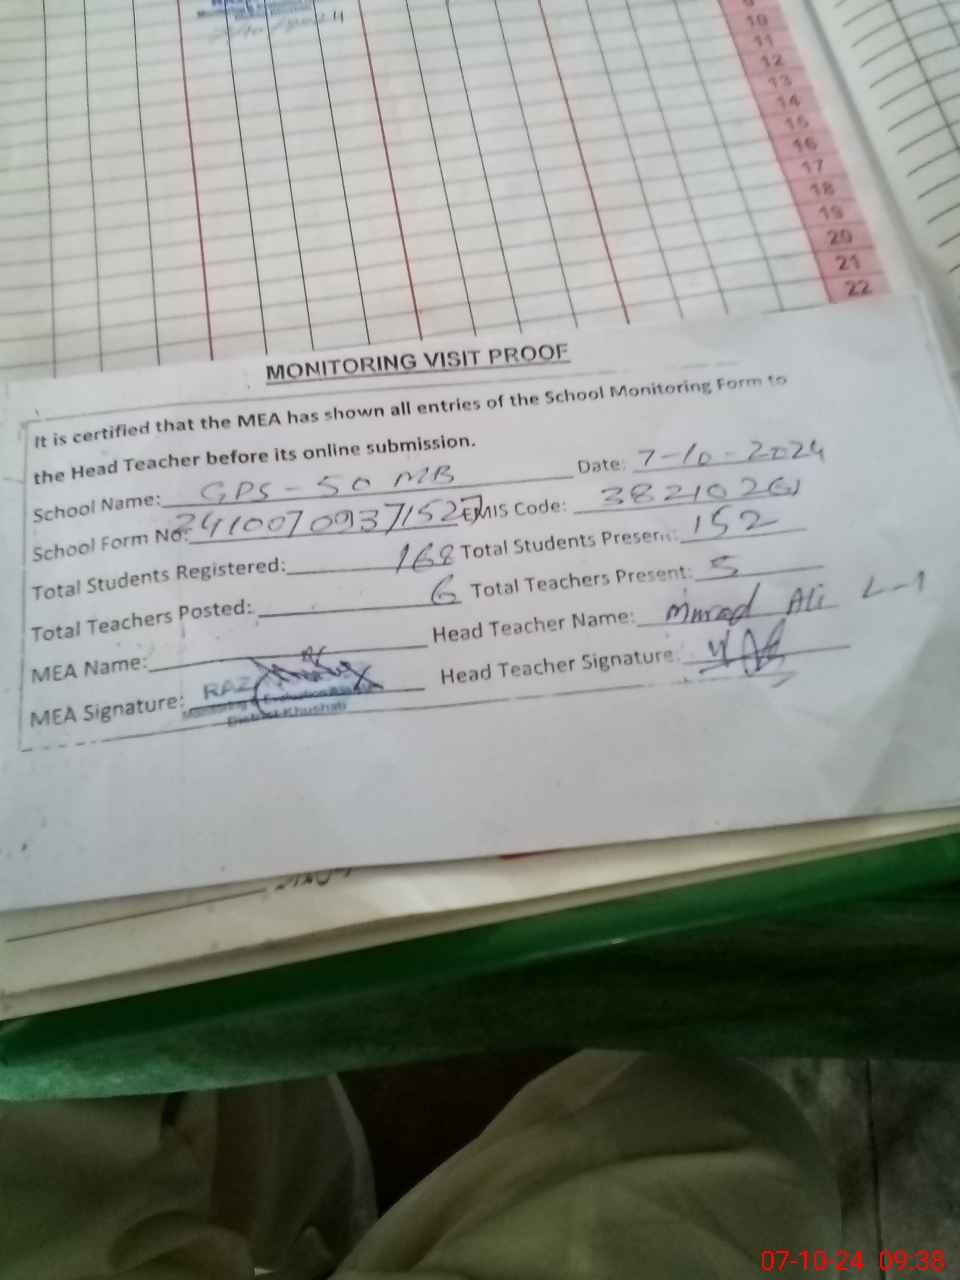 9
10
11
12
13
14
15
16
17
18
19
20
21
22
MONITORING VISIT PROOF
It is certified that the MEA has shown all entries of the School Monitoring Form to
the Head Teacher before its online submission.
School Name: GPS - 50 MB Date: 7-10-2024
School Form No: 24100709371527 EMIS Code: 38210261
Total Students Registered: 168 Total Students Present: 152
Total Teachers Posted: 6 Total Teachers Present: 5
MEA Name: Head Teacher Name: Murad Ali L-1
MEA Signature: RAZ Head Teacher Signature:
Monitoring & Evaluation
District Khushab
07-10-24 09:38